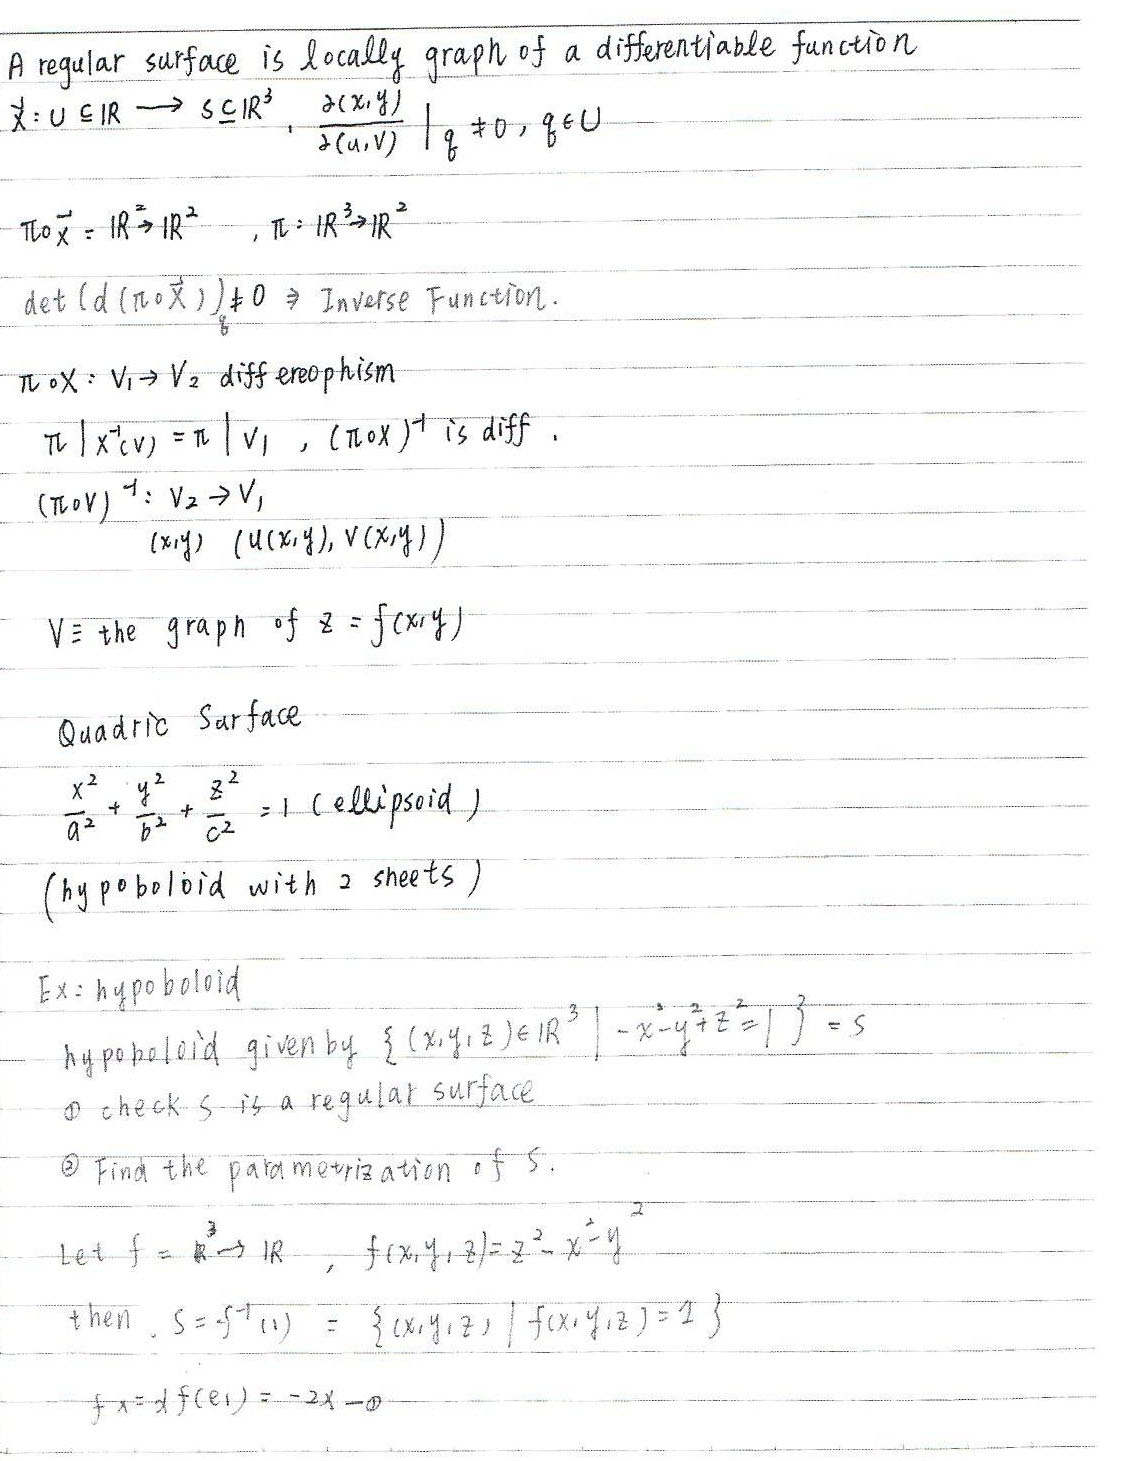 A regular surface is locally graph of a differentiable function
x⃗ : U ⊆ ℝ → S ⊆ ℝ³ , ∂(x,y)/∂(u,v) |_q ≠ 0, q ∈ U
π∘x⃗ = ℝ² → ℝ² , π : ℝ³ → ℝ²
det (d (π∘x⃗))_q ≠ 0 ⇒ Inverse Function.
π∘X : V₁ → V₂ differeophism
π | x⁻¹(V) = π | V₁ , (π∘X)⁻¹ is diff .
(π∘V)⁻¹ : V₂ → V₁
(x,y) (u(x,y), v(x,y))
V ≡ the graph of z = f(x,y)
Quadric Surface
x²/a² + y²/b² + z²/c² = 1 (ellipsoid)
(hypoboloid with 2 sheets)
Ex: hypoboloid
hypoboloid given by {(x,y,z) ∈ ℝ³ | -x²-y²+z²=1} = S
① check S is a regular surface
② Find the parametrization of S.
Let f = ℝ³ → ℝ , f(x,y,z) = z²-x²-y²
then . S = f⁻¹(1) = {(x,y,z) | f(x,y,z) = 1}
fx = df(e₁) = -2x —①